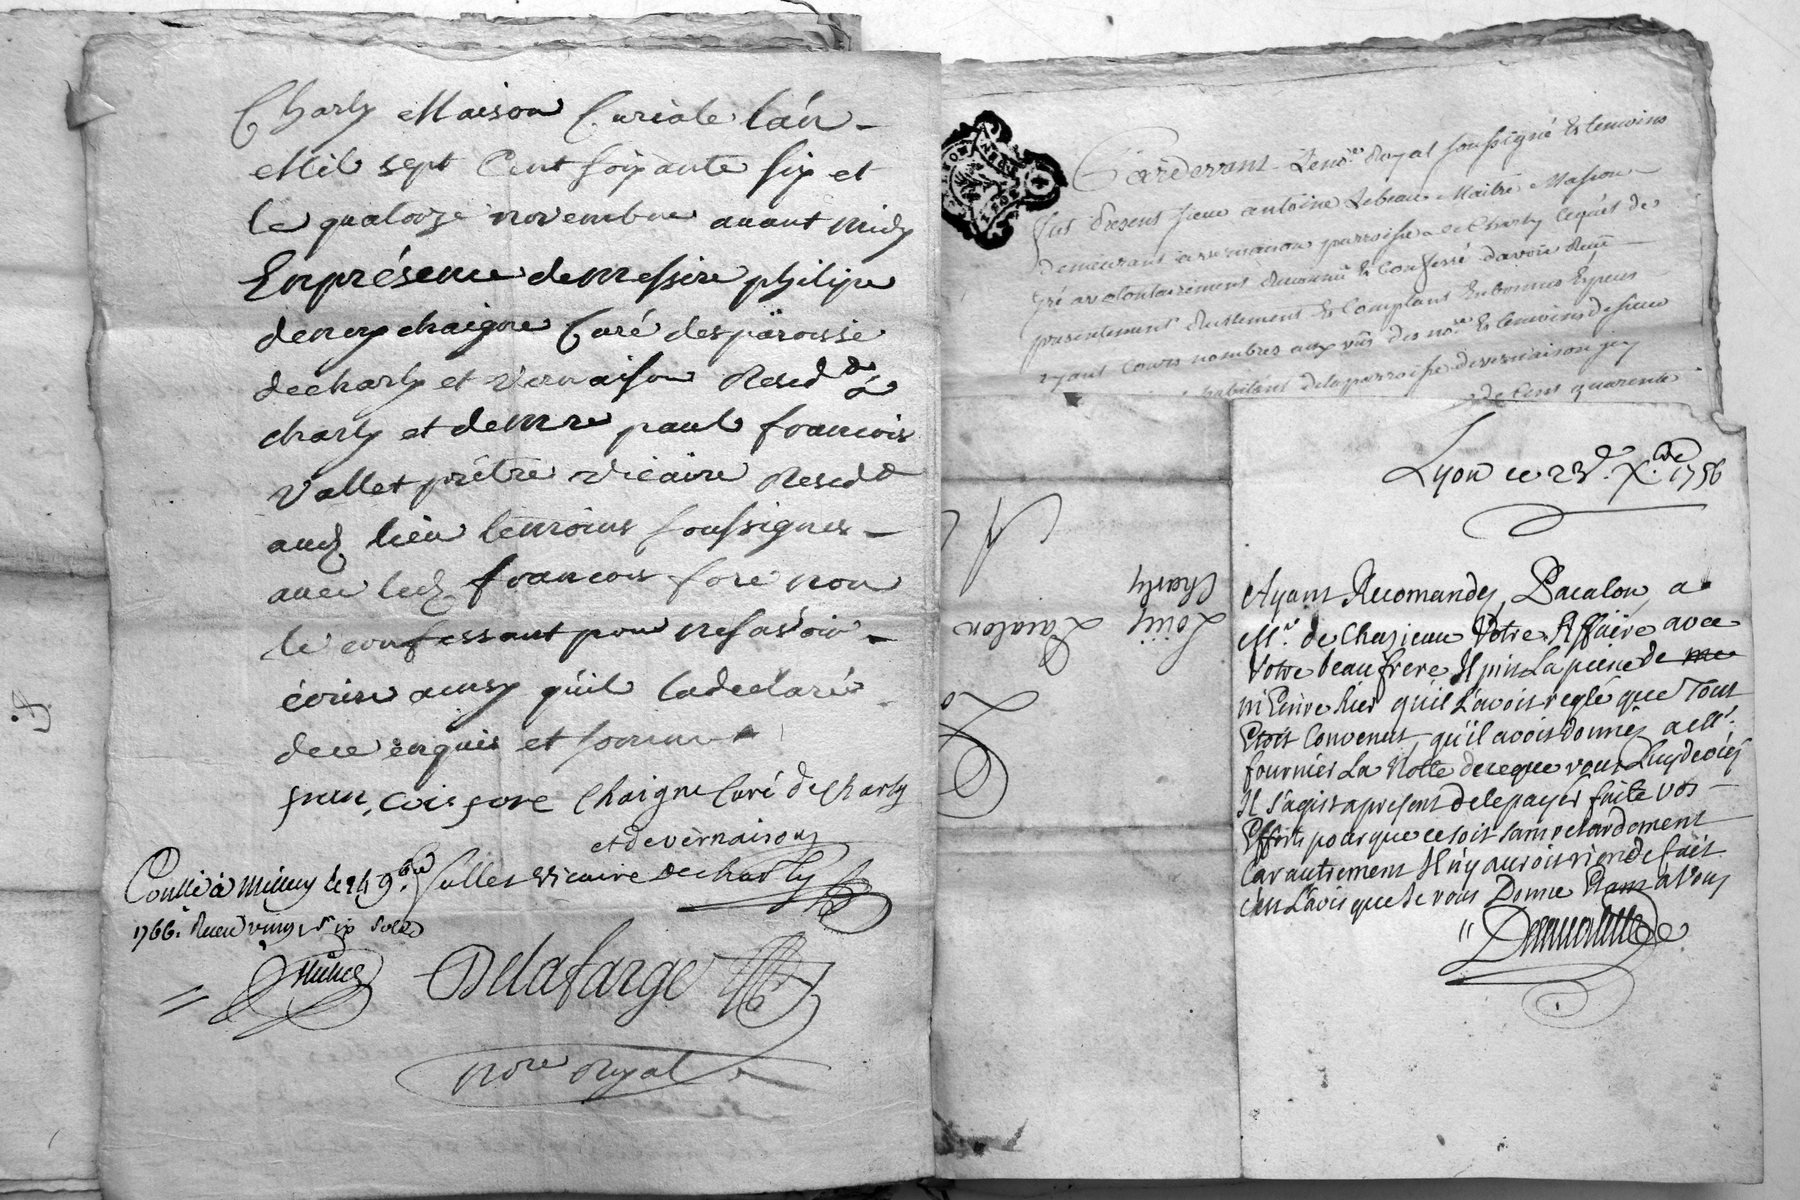 Charly Maison Curiale l'an
Mil sept Cent soixante six et
le quatorze novembre avant midy
En présence de messire philipe
deney chaigne Curé des paroisse
de charly et vernaison Resid.d à
charly et de Mre paul françois
Vallet prêtre vicaire Resid.d
aud lieu temoins soussignes
avec led françois fore non
le confessant pour ne savoir
écrire ainsy qu'il la declaré
de ce enquis et somme
fore Chaigne Curé de charly
et de vernaison
Vallet vicaire de charly
Conllé à Millery le 24 9.bre
1766. Receu vingt six sols
Delafarge
no.re Royal
Pardevant Le no.re Royal soussigné & temoins
fut present sieur antoine Lebeau Maitre Masson
demeurant a vernaison parroisse de Charly lequel de
gré a volontairement reconnu & Confessé d'avoir Receu
presentement reellement & Comptant En bonnes Especes
ayant Cours nombrés aux vûs des no.re & temoins de sieur
habitant de la parroisse de vernaison
de Cent quarente
Louis Pacalon
Charly
Lyon ce 23.e X.bre 1756
Ayant Recomandez Pacalon a
M.r de Chazieau Votre Affaire avec
Votre beau frere Il prit La peine de me
m'Ecrire hier qu'il L'avoit reglé que Tout
Etoit Convenut, qu'il avoit donnez a M.r
fournier La Notte de ce que vous Luy devies
Il s'agist a present de le payer faite vos
Efforts pour que ce soit sans retardement
Car autrement Il n'y auroit rien de fait
c'est L'avis que Je vous Donne Etant a Vous